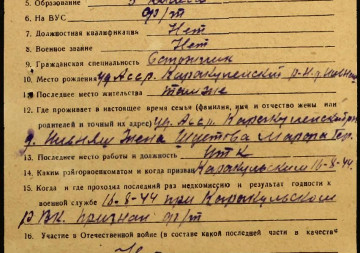 5. Образование 5
6. На ВУС ф/т
7. Должностная квалификация Нет
8. Военное звание Нет
9. Гражданская специальность
10. Место рождения Уд Асср. Каракулинский р-н д.
11. Последнее место жительства там же
12. Где проживает в настоящее время семья (фамилия, имя и отчество жены или
родителей и точный их адрес) Уд. Асср. Каракулинский
д. жена Шустова
13. Последнее место работы и должность
14. Каким райгорвоенкоматом и когда призван Каракульским 16-8-44.
15. Когда и где проходил последний раз медкомиссию и результат годности к
военной службе 16-8-44 при Каракульском
РВК. признан ф/т
16. Участие в Отечественной войне (в составе какой последней части в качестве